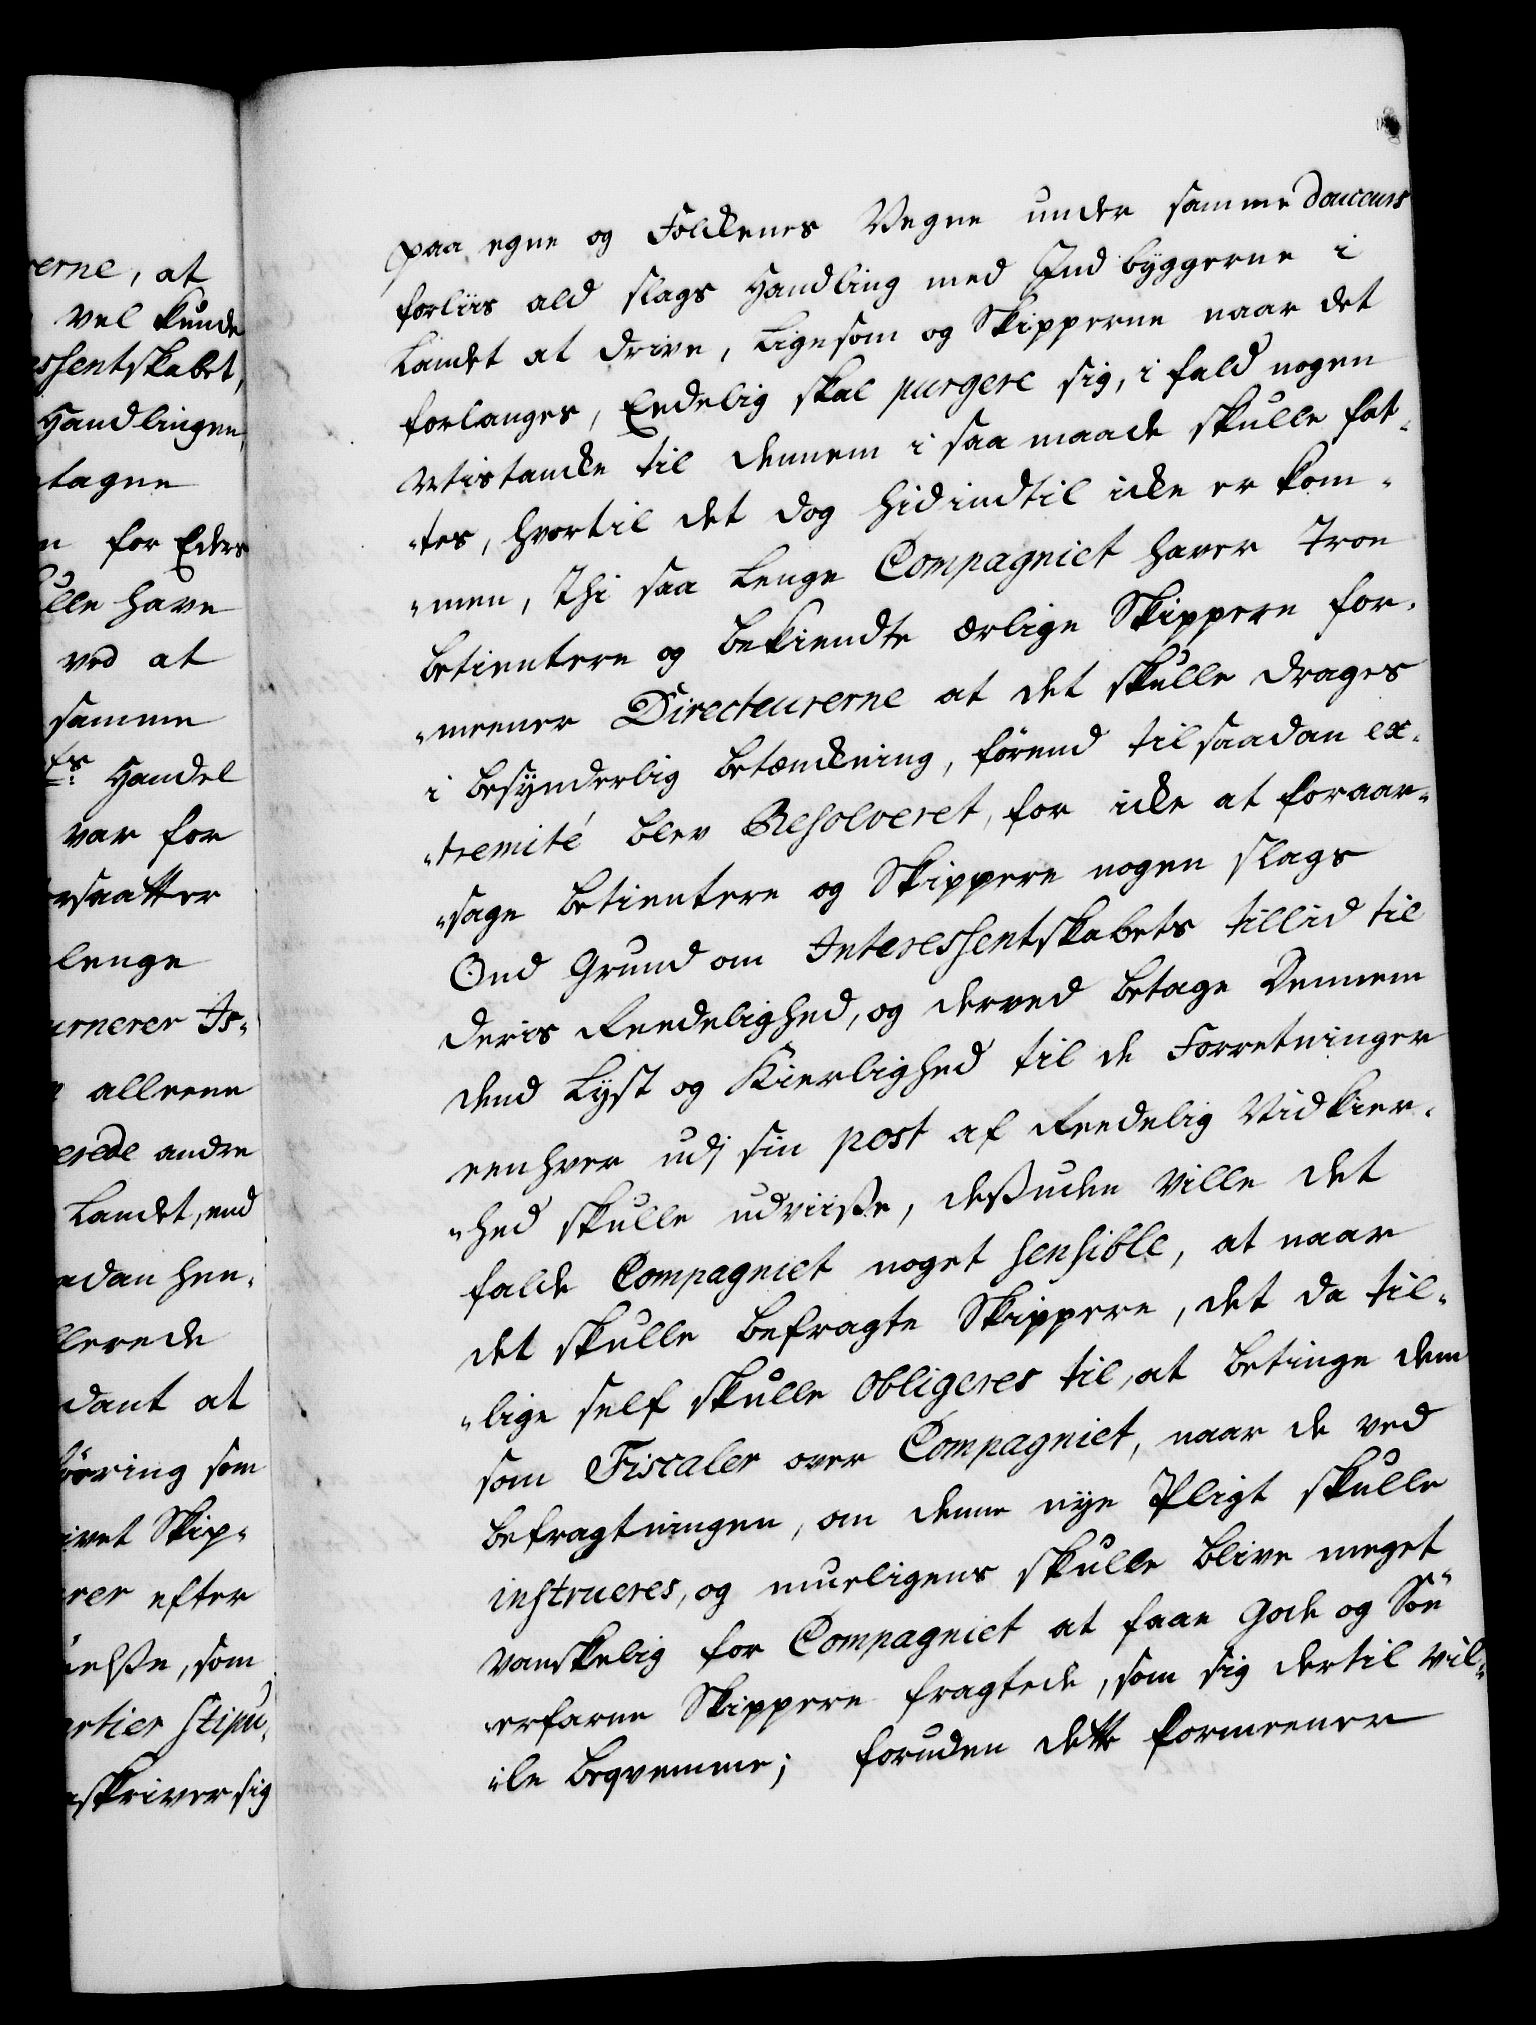 erne, at
vel kunde
essentskabet,
Handlingen,
tagne
for Eders
ulle have
ved at
samme
ts Handel
var for
rsaatter
lenge
urnerer Is-
alleene
erede andre
Landet, end
adan hen-
llerede
dant at
øring som
ivet Skip-
rer efter
elsse, som
rtier stipu-
skriver sig
paa egne og Folckenes Vegne under samme Douceurs
forliis ald slags Handling med Indbyggerne i
Landet at drive, Ligesom og Skipperne naar det
forlanges, Eedelig skal purgere sig, i fald nogen
Mistancke til dennem i saa maade skulle fat-
-tes, hvortil det dog hidindtil icke er kom-
-men, Thi saa lenge Compagniet haver Troe
betientere og bekiendte ærlige Skippere for-
-meener Directeurerne at det skulle drages
i besynderlig betænckning, førend til saadan ex-
-tremité blev Resolveret, for icke at foraar-
-sage betientere og Skippere nogen slags
Ond Grund om Interessentskabets tillid til
deris Reedelighed, og derved betage Dennem
dend Lyst og Kierlighed til de Forretninger
eenhver udj sin post af Reedelig Nidkier-
-hed skulle udviisse, dessuden ville det
falde Compagniet noget sensible, at naar
det skulle befragte Skippere, det da til-
-lige self skulle obligeres til, at betinge dem
som Fiscaler over Compagniet, naar de ved
befragtningen, om denne nye Pligt skulle
instrueres, og mueligens skulle blive meget
vanskelig for Compagniet at faae Gode og Søe-
-erfarne Skippere fragtede, som sig dertil vil-
-le beqvemme; foruden dette formeener